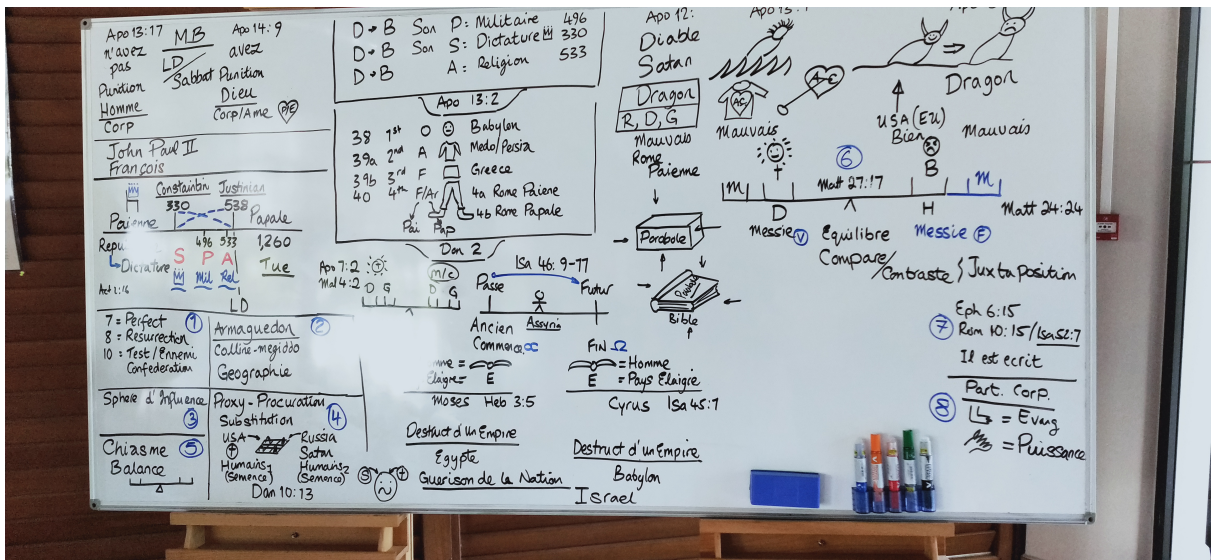 Apo 13:17
n'avez
pas
Punition
Homme
Corp
M.B
LD
Sabbat
Apo 14:9
avez
Punition
Dieu
Corp/Ame
John Paul II
François
Constantin Justinian
330 538
Paienne Papale
496 533
1,260
Tue
Dictature
S P A
Mil Rel
LD
7 = Perfect
8 = Resurrection
10 = Test/Ennemi
Confederation
1
Armaguedon
2
Colline-megiddo
Geographie
Sphere d'Influence
3
Proxy-Procuration
Substitution
4
USA
Humains1
(Semence)
Russia
Satan
Humains2
(Semence)
Dan 10:13
Chiasme
5
Balance
D → B Son P: Militaire 496
D → B Son S: Dictature 330
D → B A: Religion 533
Apo 13:2
38 1st O Babylon
39a 2nd A Medo/Persia
39b 3rd F Greece
40 4th F/Ar 4a Rome Paiene
4b Rome Papale
Pai Pap
Dan 2
Apo 7:2
Mal 4:2
D G
m/c
D G
Isa 46:9-11
Passe Futur
Assyria
Ancien
Commence α
FIN Ω
= Homme
E
E = Pays Elaigre
Moses Heb 3:5
Cyrus Isa 45:7
Destruct d'un Empire
Egypte
Guerison de la Nation
S
Destruct d'un Empire
Babylon
Israel
Apo 12:
Diable
Satan
Dragon
R, D, G
Mauvais
Rome
Paienne
Parabole
Bible
AC
Mauvais
A-C
Dragon
USA (EU)
Bien
Mauvais
6
m Matt 27:17 B m
D H
Matt 24:24
Messie V
Messie F
Equilibre
Compare/Contraste } Juxtaposition
7
Eph 6:15
Rom 10:15/Isa 52:7
Il est ecrit
8
Part. Corp.
= Evang
= Puissance